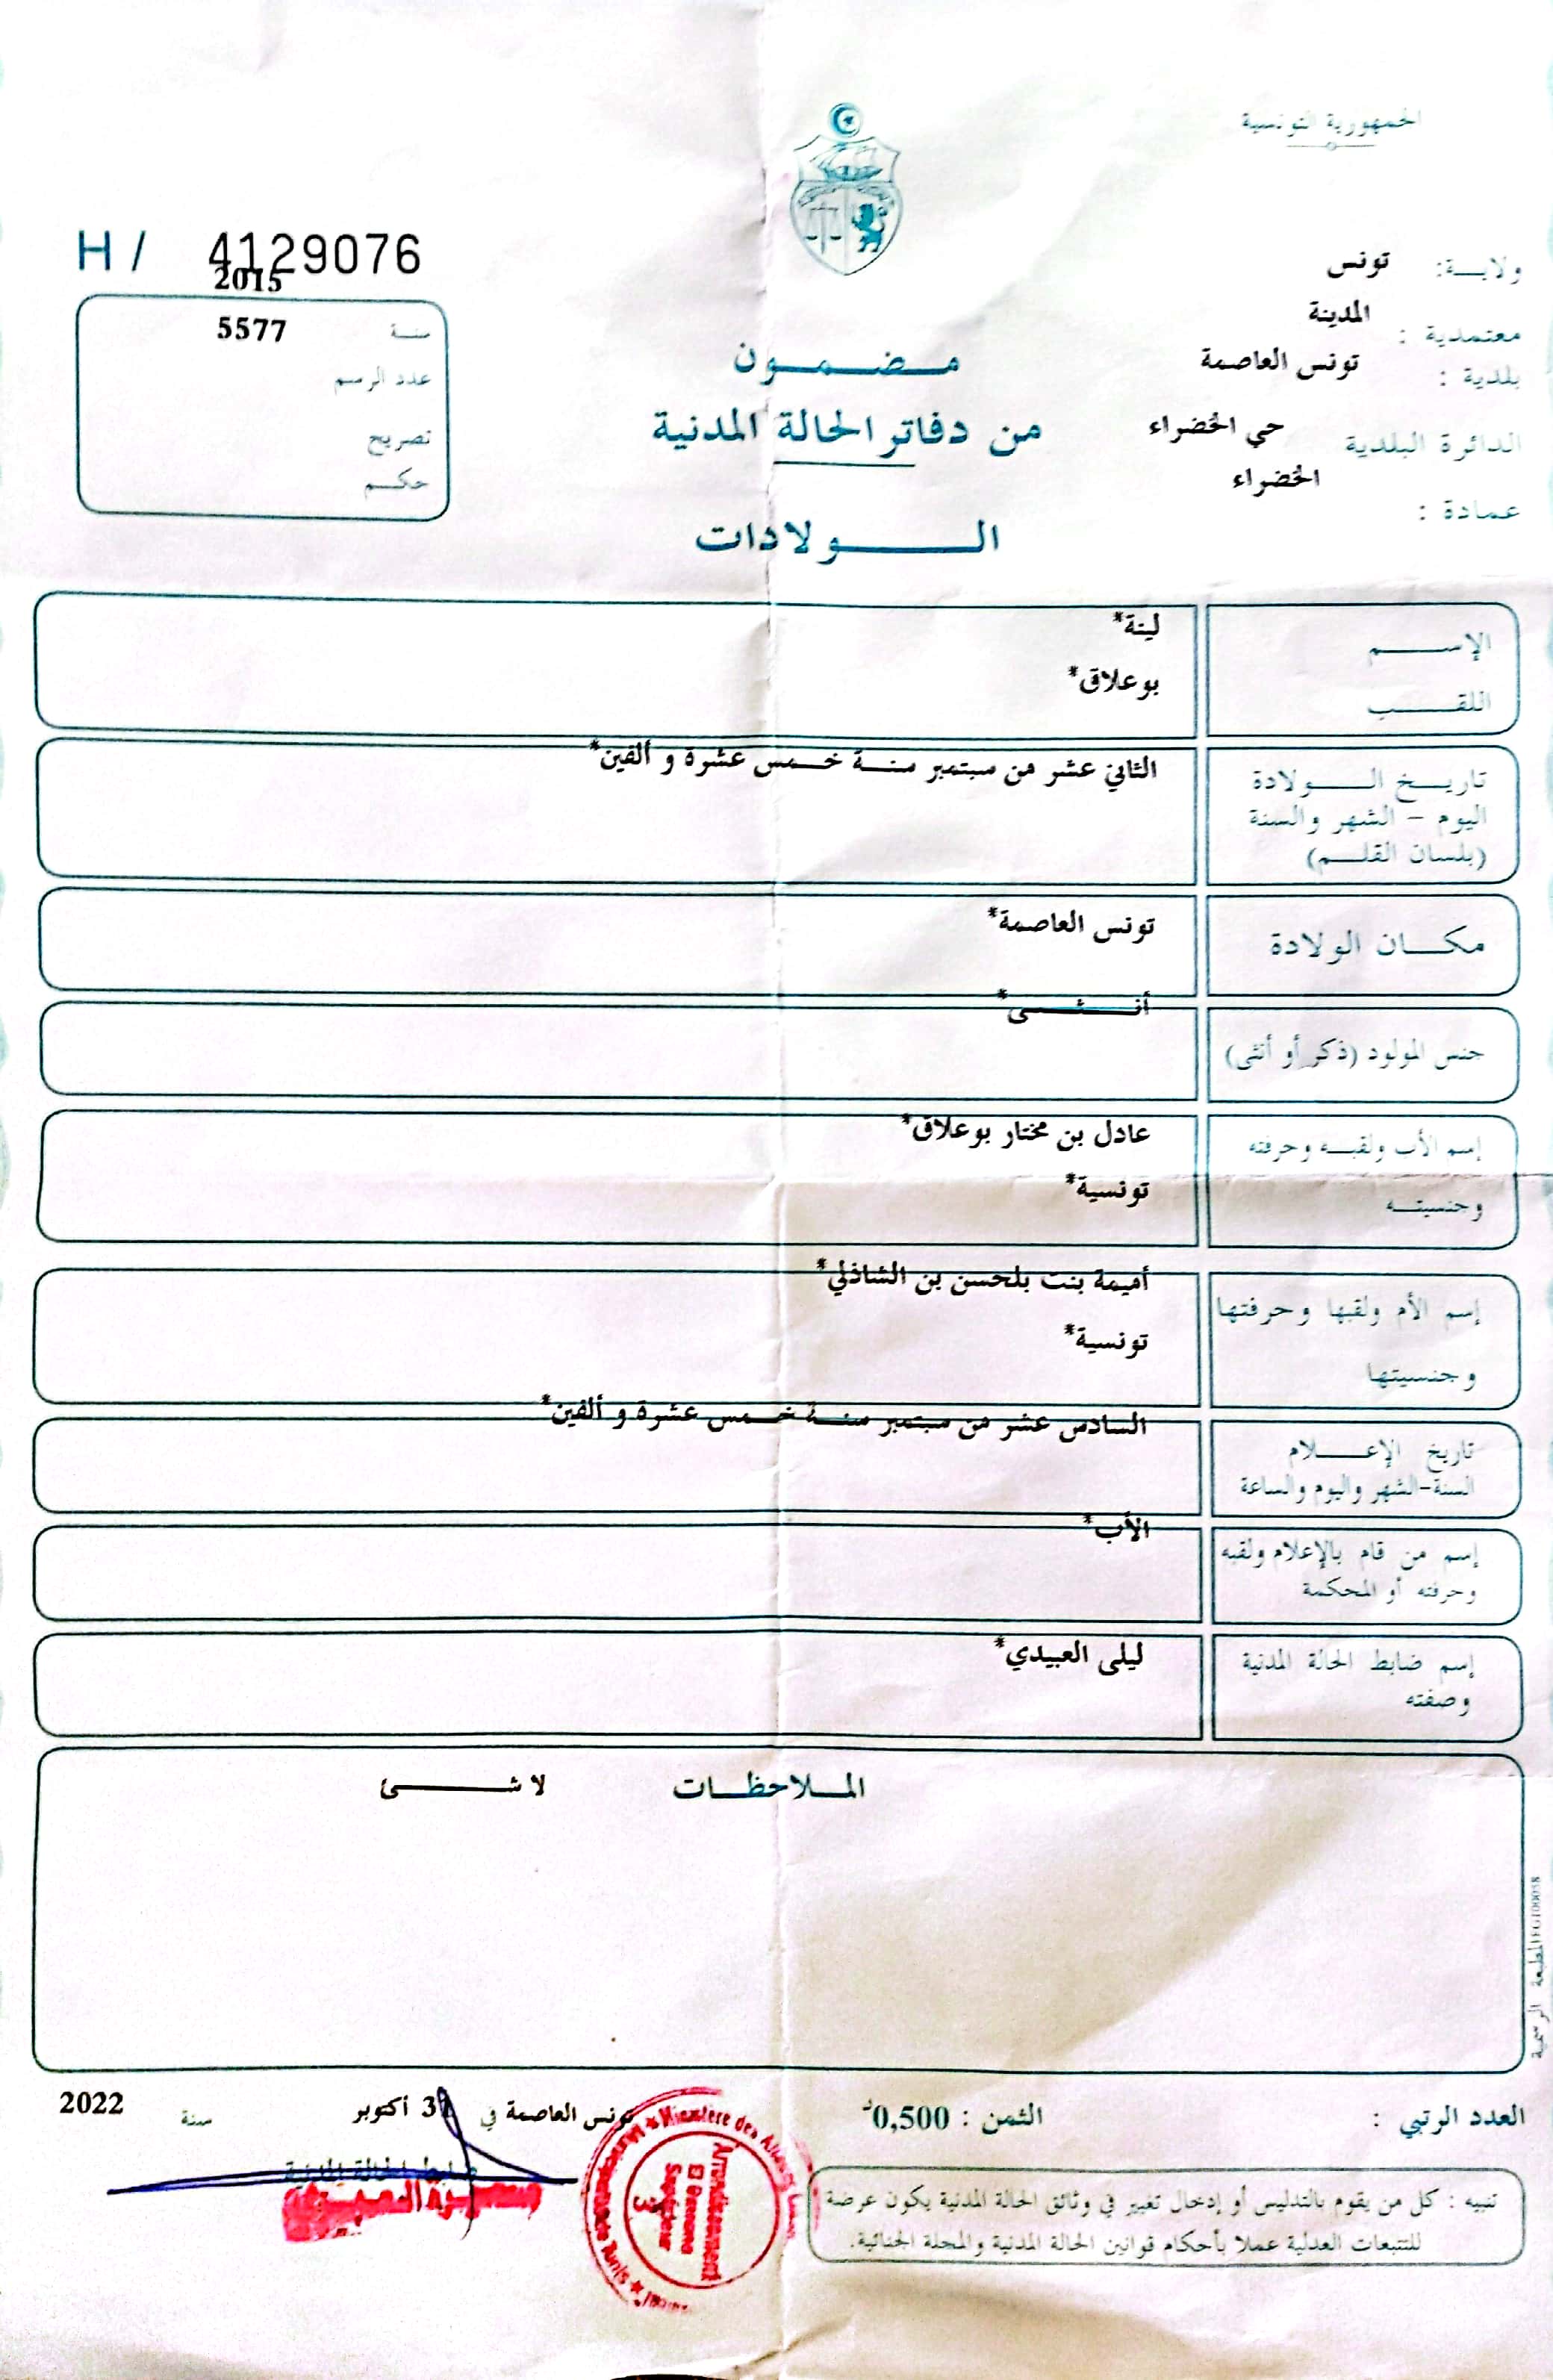 الجمهورية التونسية
H / 4129076
ولايـــة: تونس
معتمدية : المدينة
بلدية : تونس العاصمة
الدائرة البلدية حي الخضراء
عمادة : الخضراء
2015
سنـة 5577
عدد الرسم
تصريح
حكـم
مـضـمـون
من دفاتر الحالة المدنية
الـولادات
الإسـم لينة*
اللقـب بوعلاق*
تاريـخ الـولادة الثاني عشر من سبتمبر سنـة خـمس عشرة و ألفين*
اليوم - الشهر والسنة
(بلسان القلـم)
مكـان الولادة تونس العاصمة*
جنس المولود (ذكر أو أنثى) أنـثـى*
إسم الأب ولقبـه وحرفته عادل بن مختار بوعلاق*
وجنسيتـه تونسية*
إسم الأم ولقبها وحرفتها أميمة بنت بلحسن بن الشاذلي*
وجنسيتها تونسية*
تاريخ الإعـلام السادس عشر من سبتمبر سنـة خـمس عشرة و ألفين*
السنة-الشهر واليوم والساعة
إسم من قام بالإعلام ولقبه الأب*
وحرفته أو المحكمة
إسم ضابط الحالة المدنية ليلى العبيدي*
وصفته
المـلاحظـات لا شـئ
المطبعة الرسمية
العدد الرتبي :
الثمن : 0,500د
تونس العاصمة في 31 أكتوبر سنة 2022
ضابط الحالة المدنية
Arrondissement
El Omrane
Supérieur
3
تنبيه : كل من يقوم بالتدليس أو إدخال تغيير في وثائق الحالة المدنية يكون عرضة
للتتبعات العدلية عملا بأحكام قوانين الحالة المدنية والمجلة الجنائية.